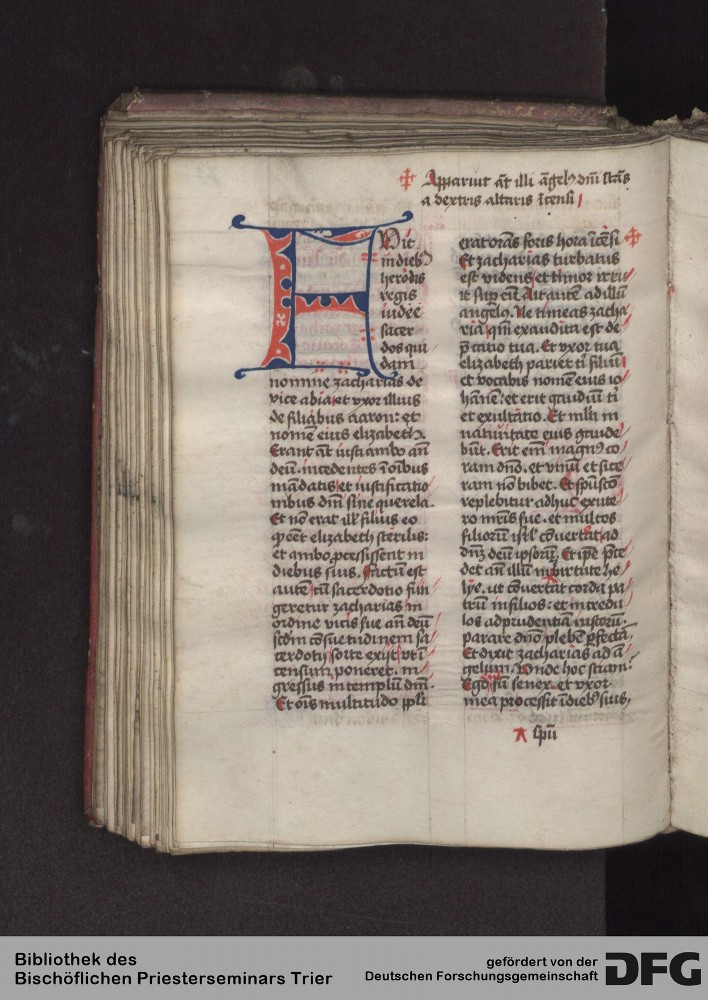 Apparuit aūt illi āgelꝰ dn̄i stās
a dextris altaris īcensi
Fuit
in diebꝰ
herodis
regis
iudee
sacer
dos qui
dam
nomine zacharias de
vice abia: et vxor illius
de filiabus aaron: et
nomē eius elizabeth.
Erant aūt iusti ambo an̄
deū. incedentes ī oībus
mādatis et iustificatio
nibus dn̄i sine querela.
Et nō erat ill' filius eo
ꝙ eēt elizabeth sterilis:
et ambo ꝓcessissent in
diebus suis. factū est
autē cū sacerdotio fun
geretur zacharias in
ordine vicis sue an̄ deū
scd̄m cōsuetudinem sa
cerdotij sorte exijt vt ī
censum poneret. in
gressus in templū dn̄i.
Et oīs multitudo ppl̄i
erat orās foris hora īcēsi
Et zacharias turbatus
est videns et timor irru
it suꝑ eū. Ait autē ad illū
angelꝰ. Ne timeas zacha
ria qm̄ exaudita est de
p̄catio tua. Et vxor tua
elizabeth pariet tⁱ filiū
et vocabis nomē eius io
hānē: et erit gaudiū tⁱ
et exultatio. Et mlti in
natiuitate eius gaude
būt. Erit em̄ magnꝰ co
ram dn̄o. et vinū et sice
ram nō bibet. Et sp̄usctō
replebitur adhuc ex ute
ro mr̄is sue. et multos
filiorū isrl' cōuertet ad
dn̄ʒ deū ipsorū. Et ip̄e p̄ce
det an̄ illū in virtute he
lye. ut cōuertat corda pa
trū in filios: et incredu
los ad prudentiam iustorū.
parare dn̄o plebē ꝑfectā.
Et dixit zacharias ad ā
gelum. Vnde hoc sciam?
Ego sū senex. et vxor
mea processit ī diebꝰ suis.
sp̄u
Bibliothek des
Bischöflichen Priesterseminars Trier
gefördert von der
Deutschen Forschungsgemeinschaft
DFG